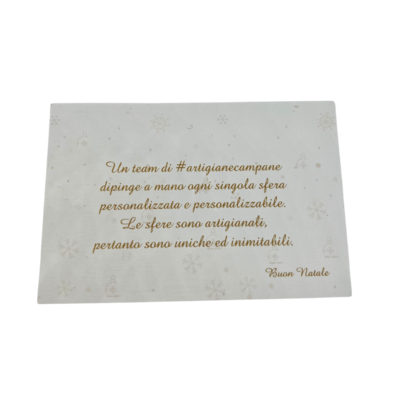 Un team di #artigianecampane
dipinge a mano ogni singola sfera
personalizzata e personalizzabile.
Le sfere sono artigianali,
pertanto sono uniche ed inimitabili.
Buon Natale